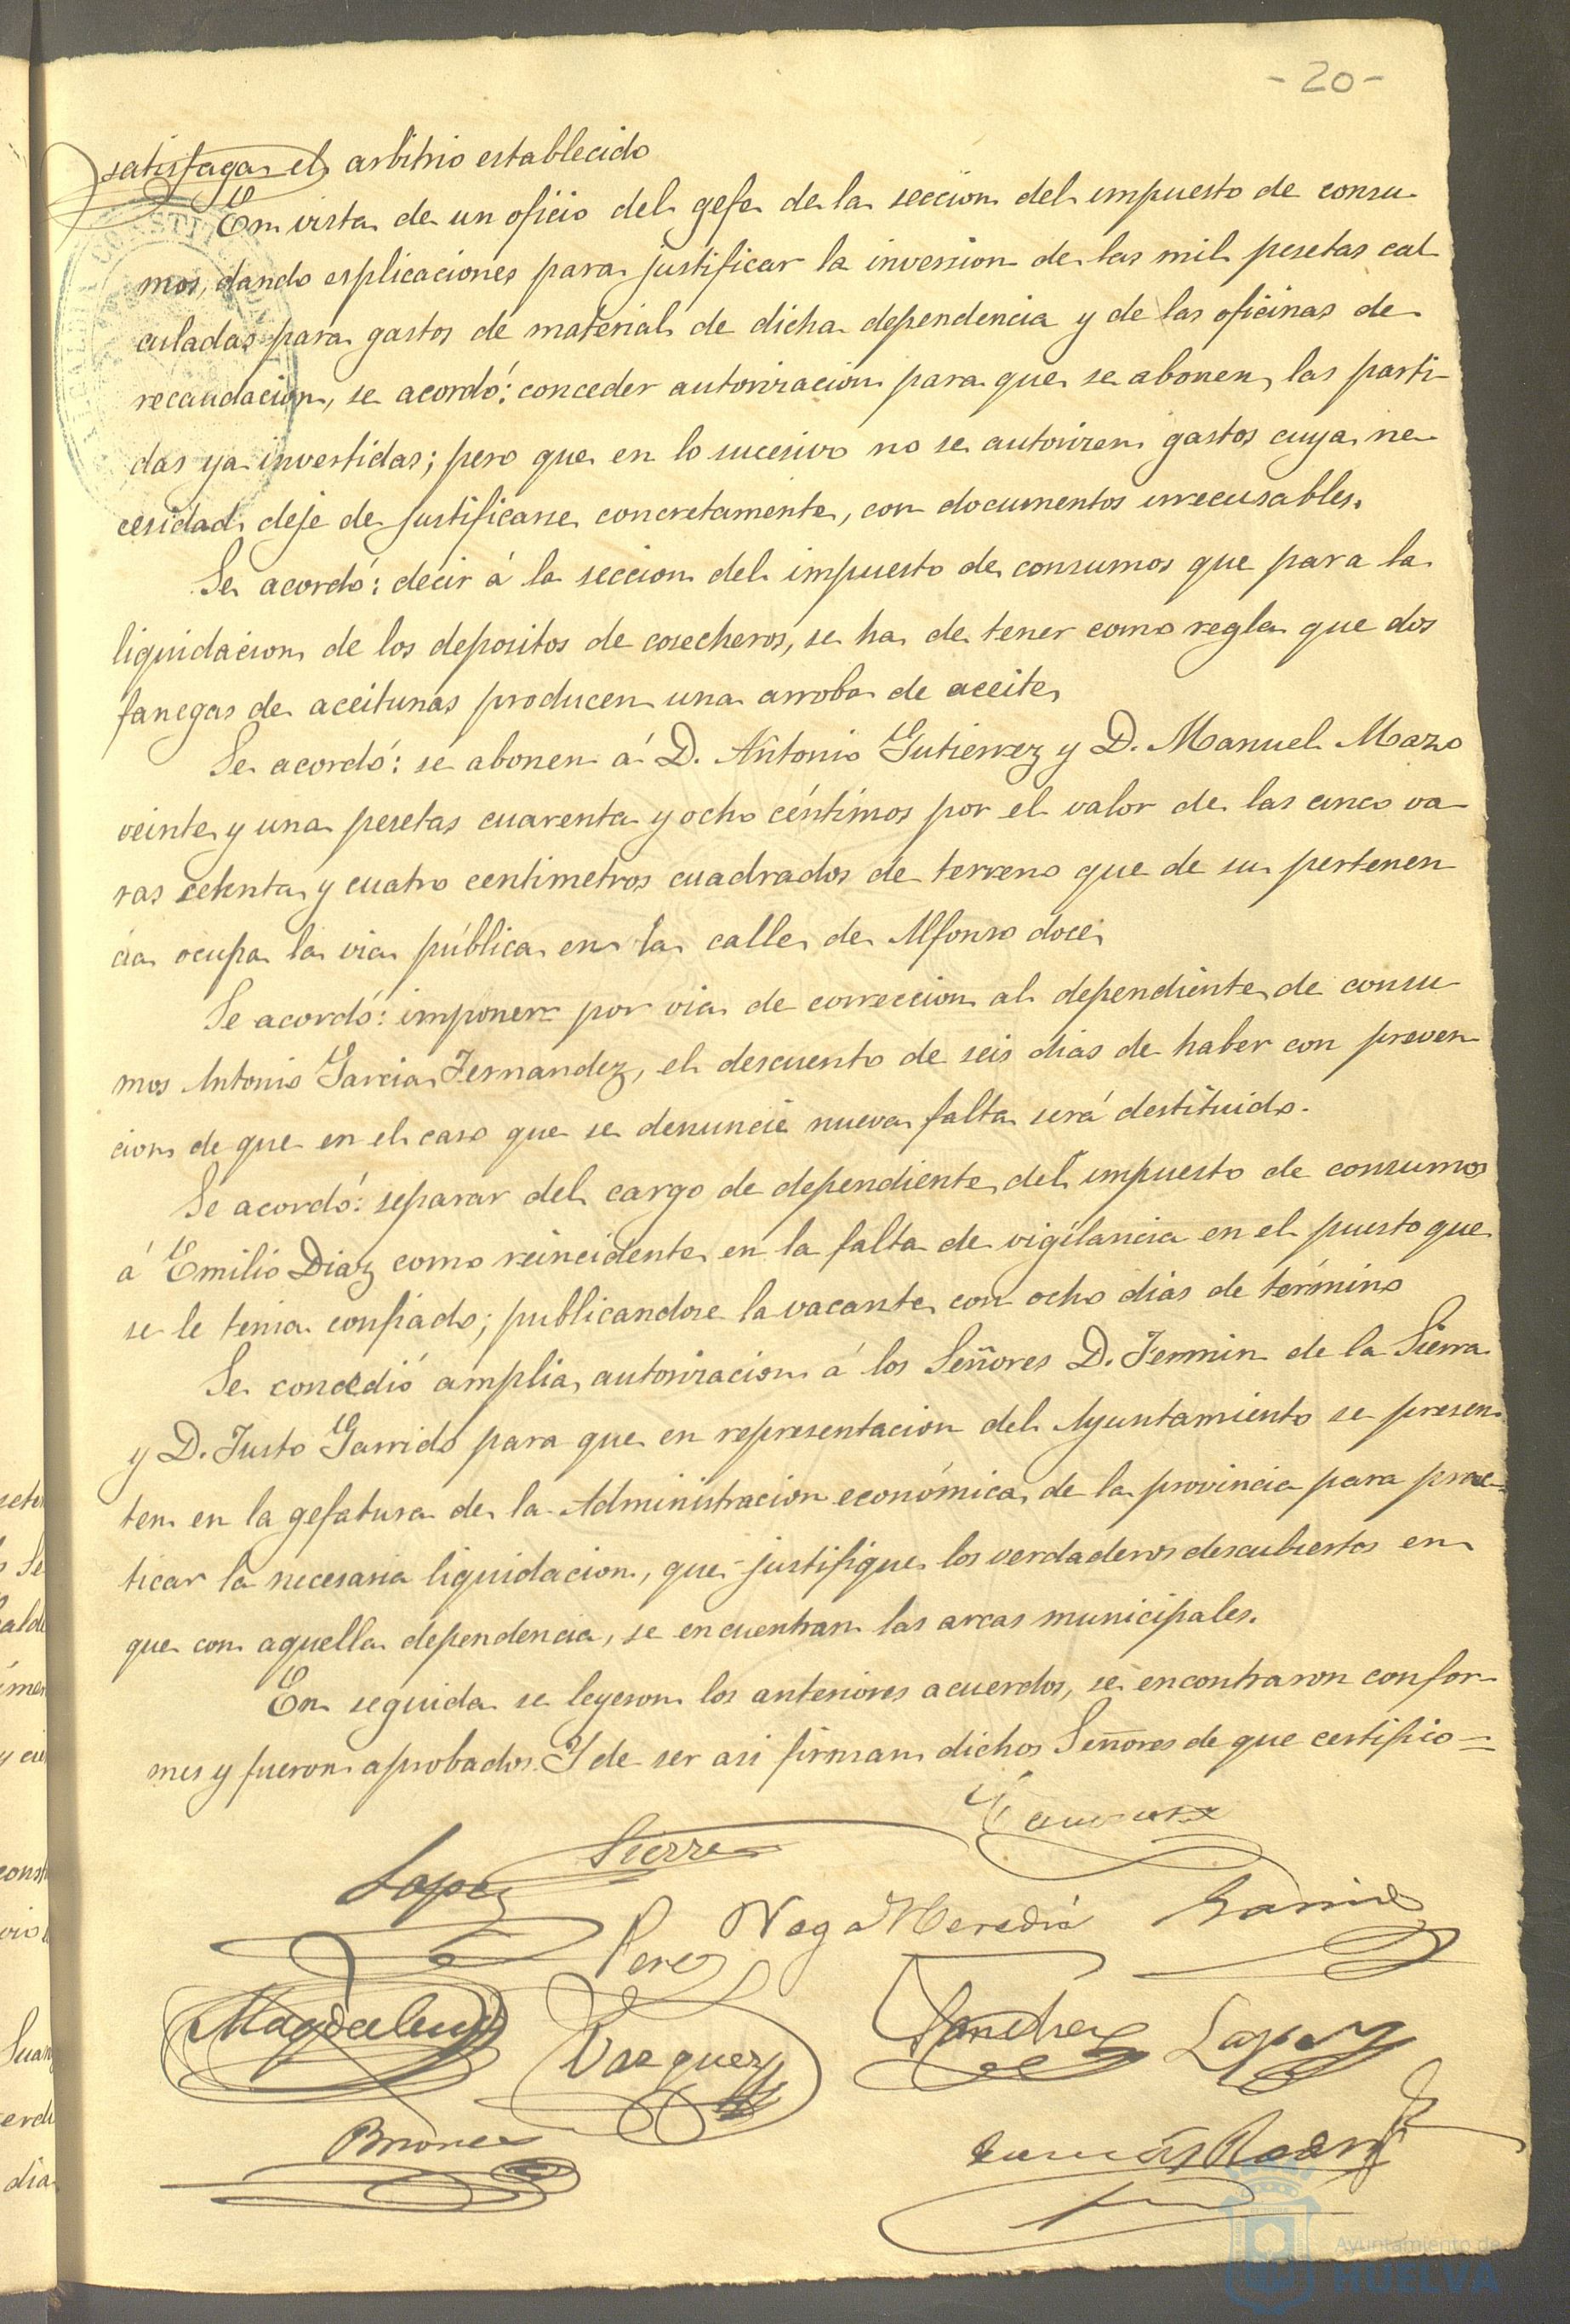 - 20 -
satisfaga el arbitrio establecido
En vista de un oficio del gefe de la seccion del impuesto de consu
mos, dando esplicaciones para justificar la inversion de las mil pesetas cal
culadas para gastos de material de dicha dependencia y de las oficinas de
recaudacion, se acordó: conceder autorizacion para que se abonen las parti-
das ya invertidas; pero que en lo sucesivo no se autorizen gastos cuya ne
cesidad deje de justificarse concretamente, con documentos irrecusables.
Se acordó: decir á la seccion del impuesto de consumos que para la
liquidacion de los depositos de cosecheros, se ha de tener como regla que dos
fanegas de aceitunas producen una arroba de aceite
Se acordó: se abonen á D. Antonio Gutierrez y D. Manuel Mazo
veinte y una pesetas cuarenta y ocho céntimos por el valor de las cinco va
ras setenta y cuatro centimetros cuadrados de terreno que de su pertenen
cia ocupa la via pública en la calle de Alfonso doce
Se acordó: imponer por via de correccion al dependiente de consu
mos Antonio Garcia Fernandez, el descuento de seis dias de haber con preven
cion de que en el caso que se denuncie nueva falta será destituido.
Se acordó: separar del cargo de dependiente del impuesto de consumos
á Emilio Diaz como reincidente en la falta de vigilancia en el puesto que
se le tenia confiado; publicandose la vacante con ocho dias de término
Se concedió amplia autorizacion á los Señores D. Fermin de la Sierra
y D. Justo Garrido para que en representacion del Ayuntamiento se presen
ten en la gefatura de la Administracion económica de la provincia para prac-
ticar la necesaria liquidacion, que justifique los verdaderos descubiertos en
que con aquella dependencia, se encuentran las arcas municipales.
En seguida se leyeron los anteriores acuerdos, se encontraron confor-
mes y fueron aprobados. Y de ser asi firman dichos Señores de que certifico=
Lopez Sierra
Perez Vega Heredia Garrido
Magdalena Vazquez Sanchez Lopez
Briones
Ayuntamiento de
HUELVA